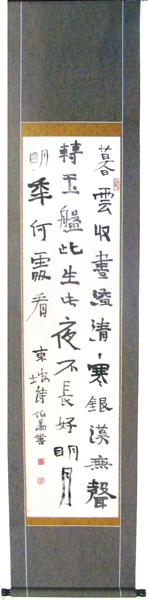 暮雲收盡溢清寒銀漢無聲
轉玉盤此生此夜不長好明月
明年何處看
東坡詩